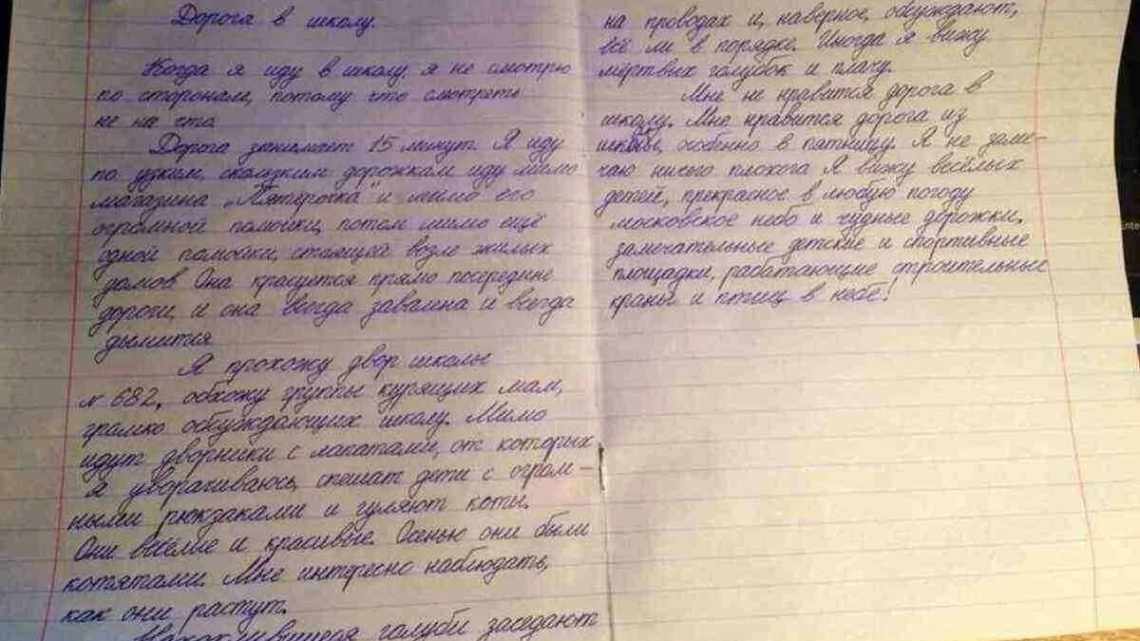 Дорога в школу.
Когда я иду в школу, я не смотрю
по сторонам, потому что смотреть
не на что.
Дорога занимает 15 минут. Я иду
по узким, скользким дорожкам, иду мимо
магазина „Пятёрочка" и мимо его
огромной помойки, потом мимо ещё
одной помойки, стоящей возле жилых
домов. Она кращется прямо посередине
дороги, и она всегда завалена и всегда
дымится.
Я прохожу двор школы
№ 682, обхожу группы курящих мам,
громко обсуждающих школу. Мимо
идут дворники с лопатами, от которых
я уворачиваюсь, спешат дети с огром-
ными рюкзаками и гуляют коты.
Они весёлые и красивые. Осенью они были
котятами. Мне интересно наблюдать,
как они растут.
голуби заседают
на проводах и, наверное, обсуждают,
всё ли в порядке. Иногда я вижу
мёртвых голубок и плачу.
Мне не нравится дорога в
школу. Мне нравится дорога из
школы, особенно в пятницу. Я не заме-
чаю ничего плохого. Я вижу весёлых
детей, прекрасное в любую погоду
московское небо и чудные дорожки,
замечательные детские и спортивные
площадки, работающие строительные
краны и птиц в небе!